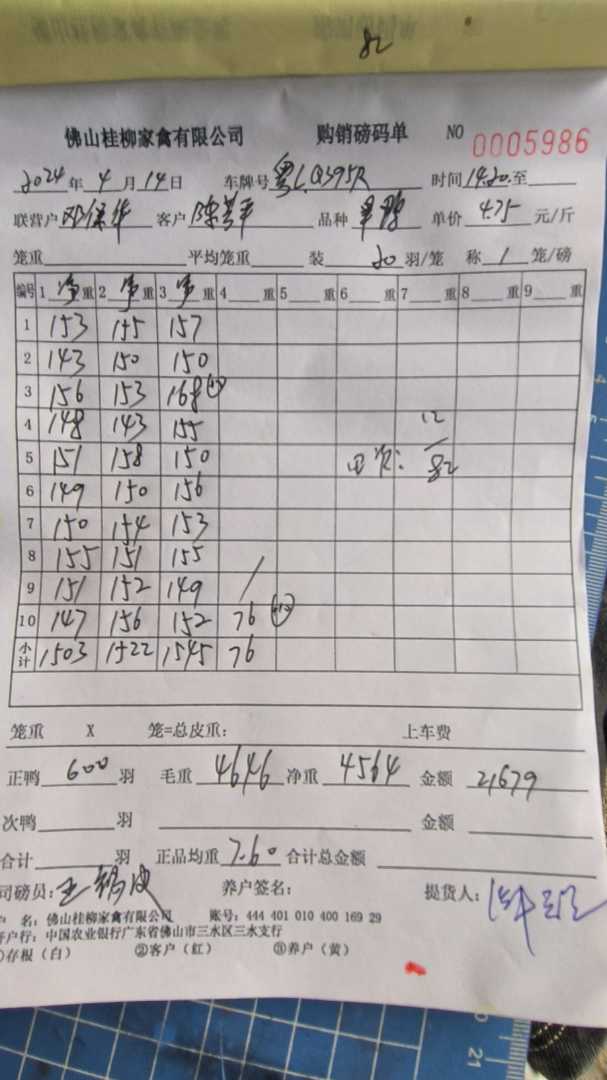 82
佛山桂柳家禽有限公司 购销磅码单 NO 0005986
2024年4月14日 车牌号 粤L Q395R 时间 14.20.至
联营户 邓保华 客户 陈苦平 品种 单价 4.75 元/斤
笼重 平均笼重 装 20 羽/笼 称 1 笼/磅
编号 1 净重 2 净重 3 净重 4 重 5 重 6 重 7 重 8 重 9 重
1 153 155 157
2 143 150 150
3 156 153 168
4 148 143 155 12
5 151 158 150 82
6 149 150 156
7 150 154 153
8 155 151 155
9 151 152 149 /
10 147 156 152 76
小计 1503 1522 1545 76
笼重 X 笼=总皮重: 上车费
正鸭 600 羽 毛重 4646 净重 4564 金额 21679
次鸭 羽 金额
合计 羽 正品均重 7.60 合计总金额
司磅员: 养户签名: 提货人:
户 名: 佛山桂柳家禽有限公司 账号: 444 401 010 400 169 29
开户行: 中国农业银行广东省佛山市三水区三水支行
①存根（白） ②客户（红） ③养户（黄）
20
21